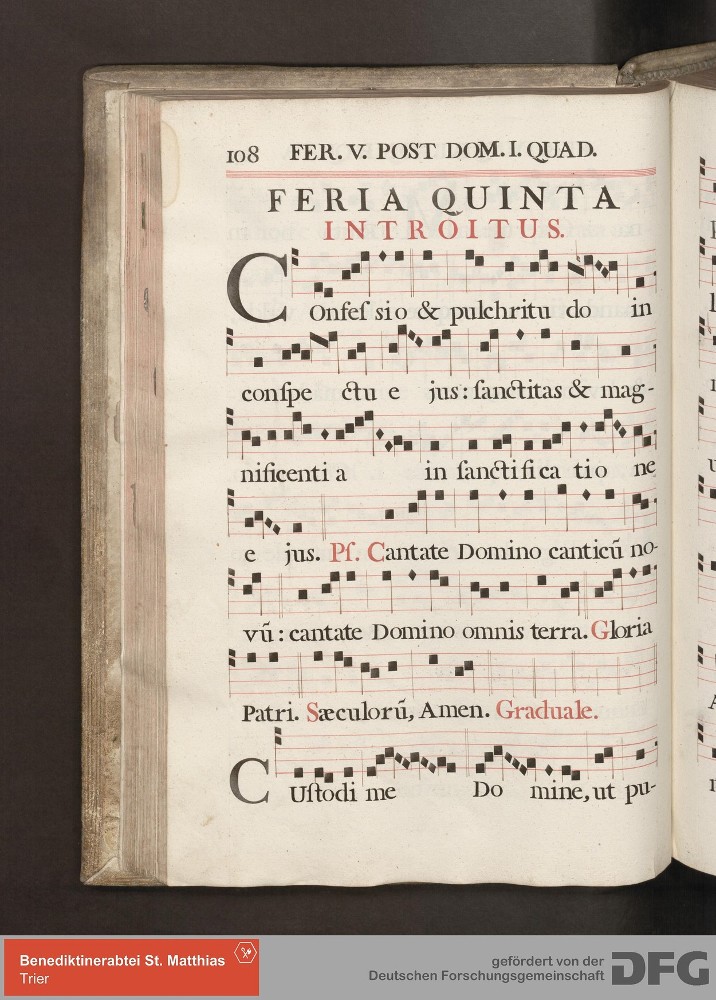 108 FER. V. POST DOM. I. QUAD.
FERIA QUINTA
INTROITUS.
COnfeſ sio & pulchritu do in
conſpe ctu e jus: ſanctitas & mag-
nificenti a in ſanctifi ca tio ne
e jus. Pſ. Cantate Domino canticũ no-
vũ: cantate Domino omnis terra. Gloria
Patri. Sæculorũ, Amen. Graduale.
CUſtodi me Do mine, ut pu-
Benediktinerabtei St. Matthias
Trier
gefördert von der
Deutschen Forschungsgemeinschaft
DFG